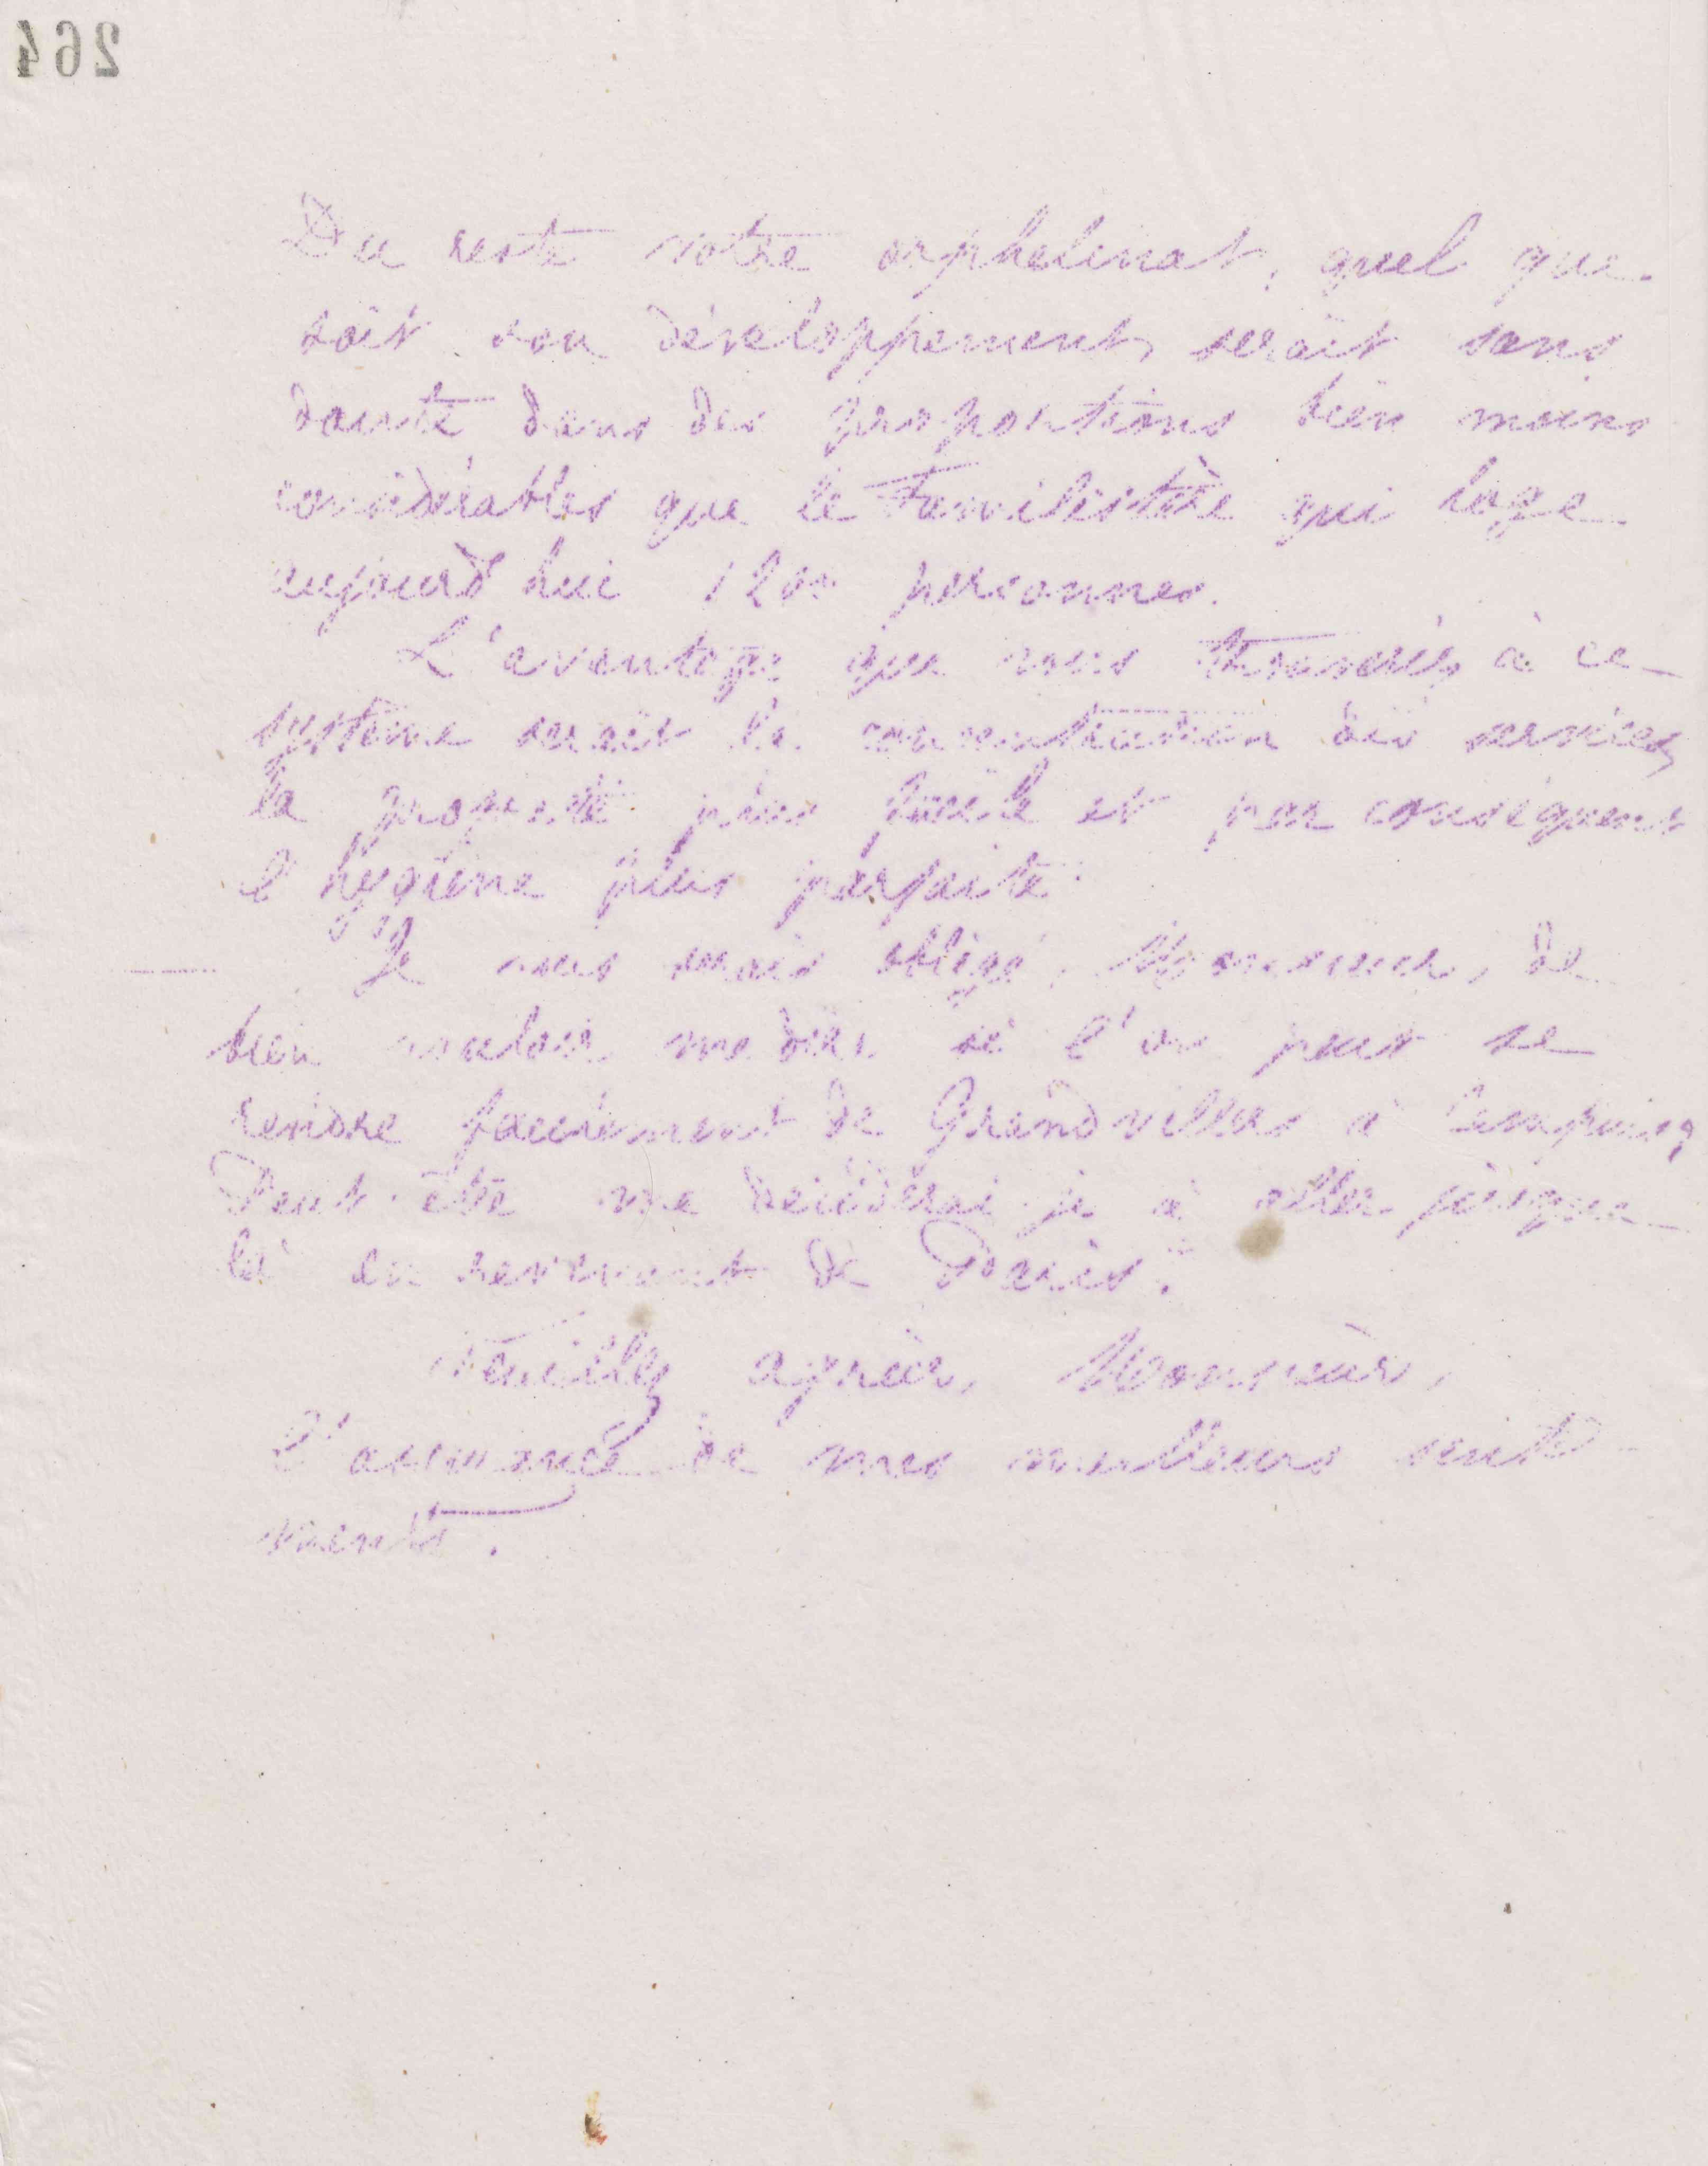 264
Du reste votre orphelinat, quel que
soit son développement, serait sans
doute dans des proportions bien moins
considérables que le Familistère qui loge
aujourd'hui 1200 personnes.
L'avantage que vous trouveriez à ce
système serait la concentration des services,
la propreté plus facile et par conséquent
l'hygiène plus parfaite.
Je vous serais obligé, Monsieur, de
bien vouloir me dire si l'on peut se
rendre facilement de Grandvilliers à Cempuis,
Peut-être me déciderai-je à aller jusque
là en revenant de Paris.
Veuillez agréer, Monsieur,
l'assurance de mes meilleurs senti
ments.